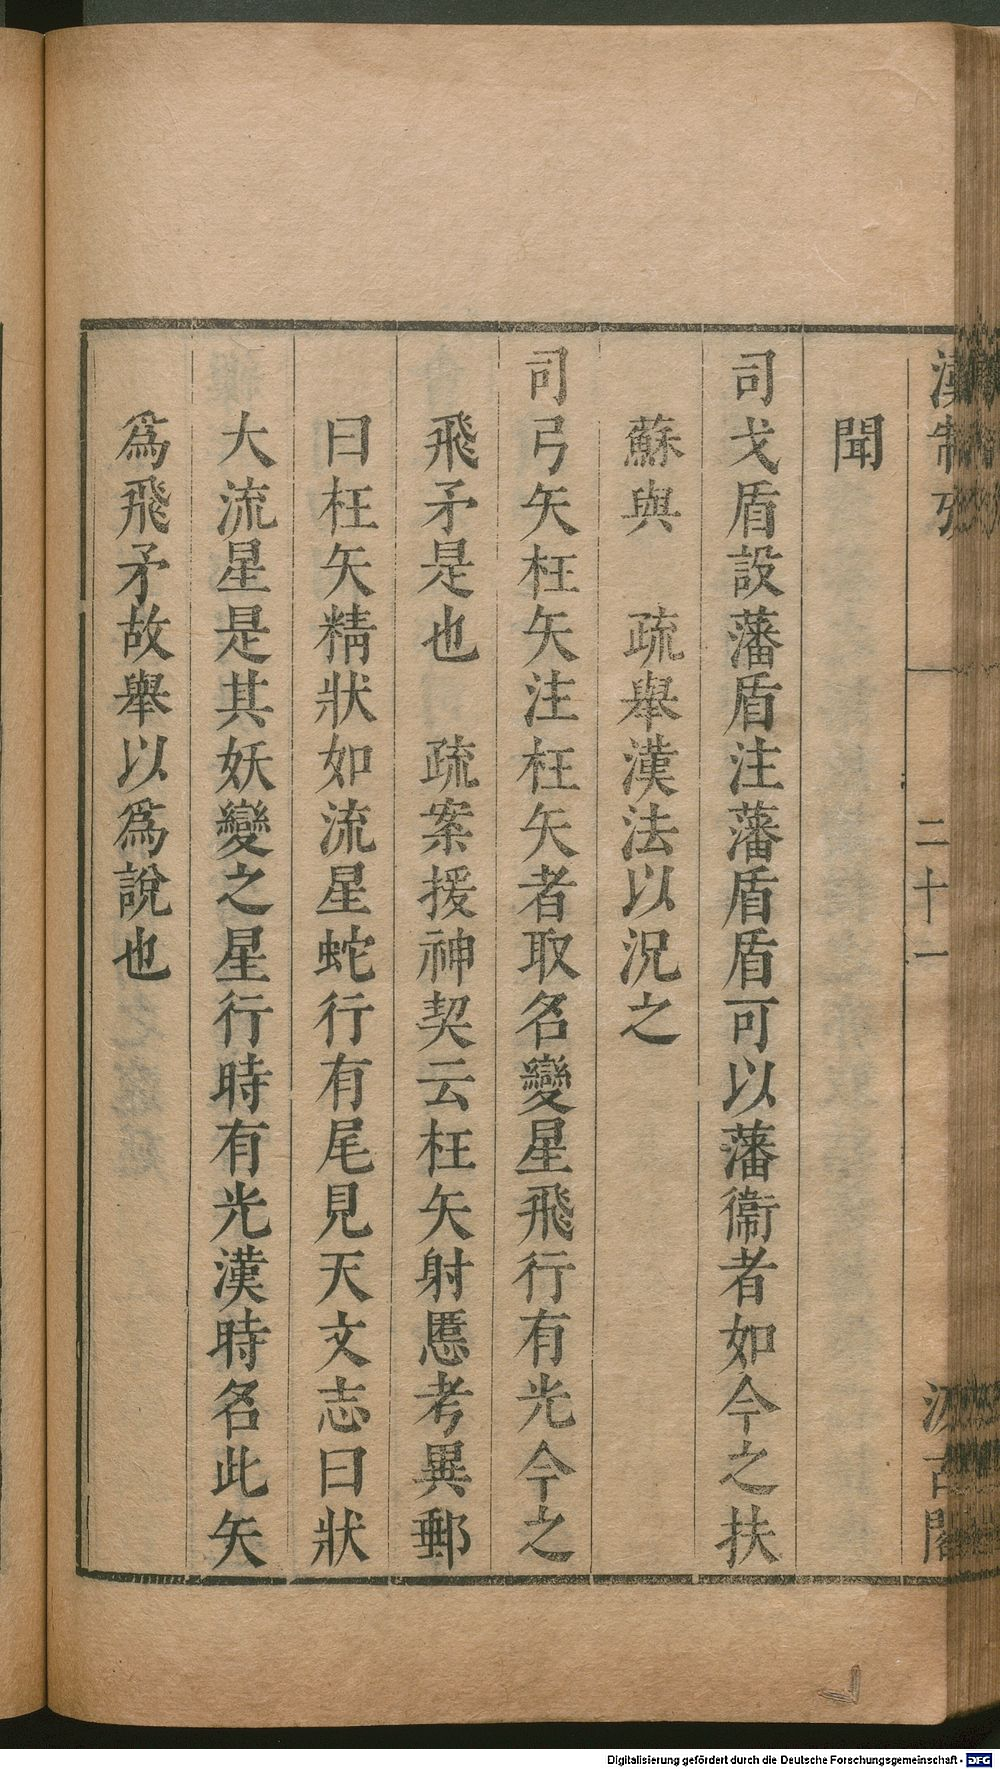 漢制攷
二十一
汲古閣
聞
司戈盾設藩盾注藩盾盾可以藩衞者如今之扶
蘇與　疏舉漢法以況之
司弓矢枉矢注枉矢者取名變星飛行有光今之
飛矛是也　疏案援神契云枉矢射慝考異郵
曰枉矢精狀如流星蛇行有尾見天文志曰狀
大流星是其妖變之星行時有光漢時名此矢
爲飛矛故舉以爲說也
Digitalisierung gefördert durch die Deutsche Forschungsgemeinschaft - DFG